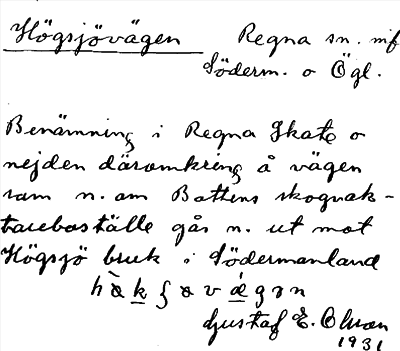 Högsjövägen Regna sn. mf
Söderm. o Ögl.
Benämning i Regna Skate o
nejden däromkring å vägen
som n. om Bottens skogvak-
tareboställe går n. ut mot
Högsjö bruk i Södermanland
Gustaf E. Olson
1931